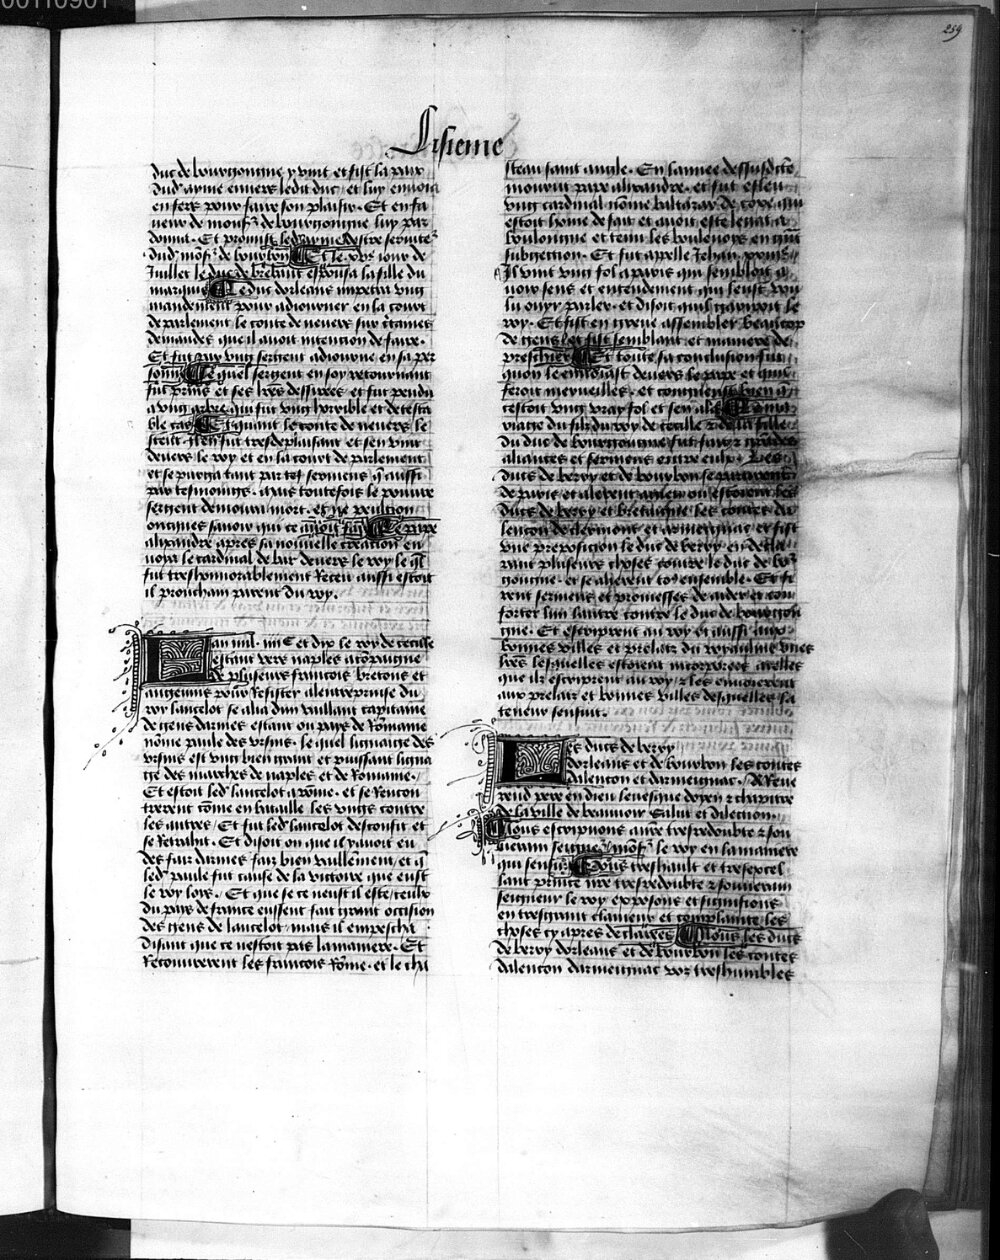 259
Sisieme
duc de bourgoingne y vint et fist la paix
dud' ayme envers ledit duc et luy envoia
en fers pour faire son plaisir. Et en fa
ueur de mons' de bourgoingne luy par
donna. Et promist led' ayme destre seruite'
dud' mo's' de bourbon Et le jour de
Juillet le duc de brebant espousa la fille du
marquis Le duc dorleans impetra ung
mandement pour adiourner en la court
de parlement le conte de neuers sur c'taines
demandes que il auoit intencion de faire.
Et fut par ung sergent adiourne en sa per
sonne Le quel sergent en soy retournant
fut prins et ses l'res dessirees et fut pendu
a ung arbre qui fut ung horrible et detesta
ble cas Et quant le conte de neuers le
sceut il en fut tresdeplaisant et sen vint
deuers le roy et en la court de parlement
et se purga tant par tel serment q' aussi
par tesmoings. mais toutesfois le pouure
sergent demoura mort. et ne peult on
oncques sauoir qui ce auoit fait Le pape
alixandre apres sa nouuelle creacion en
uoya le cardinal de bar deuers le roy le q'l
fut treshonnorablement Receu aussi estoit
il prouchain parent du roy.
Lan mil. iiii C et dix le roy de cecille
estant vers naples acompaigne
de pluseurs francois bretons et
angeuins pour Resister a lentreprinse du
roy lancelot se alia dun vaillant capitaine
de gens darmes estant ou pays de Romaine
nomme paule des vrsins. le quel lignaige des
vrsins est ung bien grant et puissant ligna
ge des marches de naples et de Romaine.
Et estoit led' lancelot a rome. et se Rencon
trerent come en bataille les ungs contre
les autres. Et fut led' lancelot desconfit et
se Retrahit. Et disoit on que il y auoit eu
des faiz darmes faiz bien vaillement. et q'
led' paule fut cause de la victoire que eust
le roy loys. Et que se ce neust il este ceulx
du pays de france eussent fait grant occision
des gens de lancelot. mais il empescha
disant que ce nestoit pas la maniere. Et
Recouurerent les francois Rome. et le cha
steau saint angle. En lannee dessusdicte
mourut pape alixandre. et fut esleu
ung cardinal nomme baltazar de coxe qui
estoit home de fait et auoit este legat a
boulongne et tenu les boulenois en gra't
subgection. Et fut apelle Jehan
Il vint ung fol a paris qui sembloit a
uoir sens et entendement qui leust vou
lu ouyr parler. et disoit quil gairiroit le
roy. Et fist en greue assembler beaucop
de gens et fist semblant et maniere de
preschier Et toute sa conclusion fut
quon le enuoiast deuers le pape et quil
feroit merueilles. et congneust bien q'
cestoit ung vray fol et sen ala Le ma
riage du filz du roy de cecille & de la fille
du duc de bourgoingne fut fait & grandes
aliances et sermens entre eulx. Les
ducs de berry et de bourbon se partirent
de paris et alerent a gien ou estoient les
ducs de berry et bretaigne les contes da
lencon de clermont et armeignac et fist
vne preposicion le duc de berry en decla
rant pluseurs choses contre le duc de bo'
goingne. et se alierent to' ensemble. Et fi
rent sermens et promesses de aider et con
forter lun lautre contre le duc de bourgon
gne. Et escriprent au roy et aussi aux
bonnes villes et prelaz du royaulme vnes
l'res lesquelles estoient incorporees a celles
que ilz escriprent au roy & les enuoierent
aux prelaz et bonnes villes desquelles la
teneur sensuit.
Les ducs de berry
dorleans et de bourbon les contes
dalencon et darmeignac. A Reue
rend pere en dieu leuesque doyen & chapitre
de la ville de beauuoiz Salut et dilection.
Nous escripuons a n're tresredoubte & sou
uerain seigne' mo's' le roy en la maniere
qui sensuit Vous treshault et tresexcel
lant prince n're tresredoubte & souuerain
seigneur le roy exposons et signifions
en tresgrant clameur et complainte les
choses cy apres declairees Nous les ducs
de berry dorleans et de bourbon les contes
dalencon darmeignac voz treshumbles